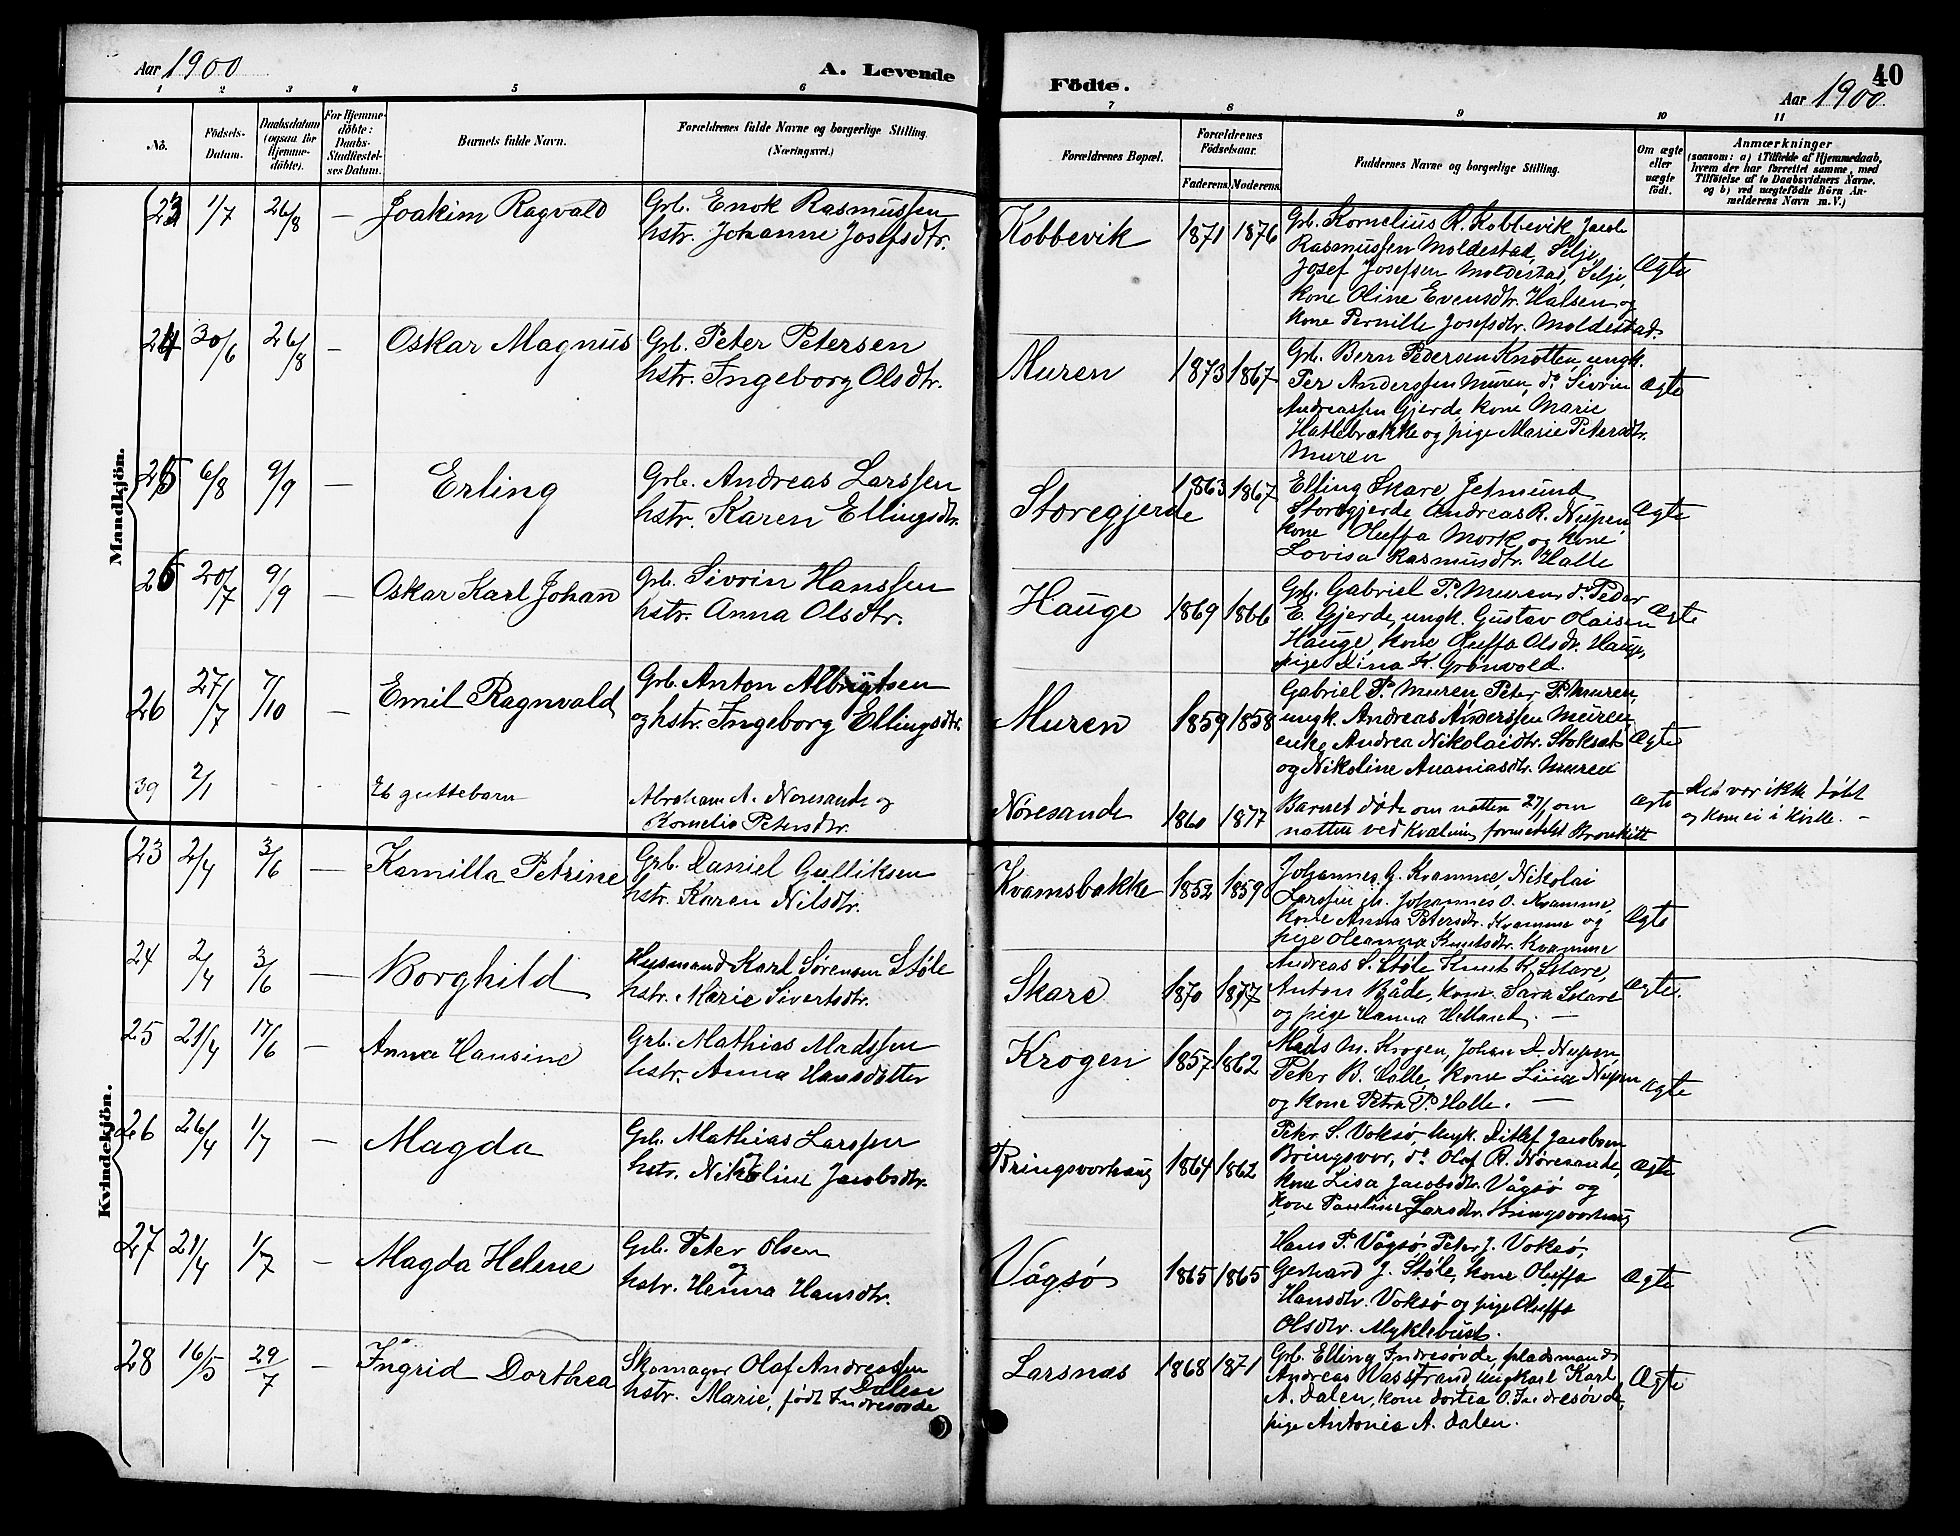 Aar 1900
A. Levende
Födte.
Aar 1900.
40
1 2 3 4 5 6 7 8 9 10 11
No.
Födsels-Datum.
Daabsdatum (ogsaa for Hjemme-döbte).
For Hjemme-döbte: Daabs-Stadfæstel-ses Datum.
Barnets fulde Navn.
Forældrenes fulde Navne og borgerlige Stilling. (Næringsvei.)
Forældrenes Bopæl.
Forældrenes Födselsaar.
Faderens. Moderens.
Faddernes Navne og borgerlige Stilling.
Om ægte eller uægte født.
Anmærkninger
(saasom: a) i Tilfælde af Hjemmedaab, hvem der har forrettet samme, med Tilföielse af to Daabsvidners Navne, og b) ved uægtefödte Börn An-melderens Navn m. V.)
Mandkjön.
23 1/7 26/8 — Joakim Ragvald
Grb. Enok Rasmussen
hstr. Johanne Josefsdtr.
Kobbevik 1871 1876
Grb. Kornelius R. Kobbevik Jacob
Rasmussen Moldestad, Selje,
Josef Josefsen Moldestad, Selje,
kone Oline Evensdtr. Halsen og
kone Pernille Josefsdtr. Moldestad.
Ægte
24 30/6 26/8 — Oskar Magnus
Grb. Peter Petersen
hstr. Ingeborg Olsdtr.
Muren 1873 1867
Grb. Bern Pedersen Knotten, ungk.
Per Anderssen Muren, do Sivrin
Andreassen Gjerde, kone Marie
Hatlebrække og pige Marie Petersdtr.
Muren
Ægte
25 6/8 9/9 — Erling
Grb. Andreas Larssen
hstr. Karen Ellingsdtr.
Storegjerde 1863 1867
Elling Skare, Jetmund
Storegjerde Andreas R. Nupen,
kone Oluffa Mork og kone
Lovisa Rasmusdtr. Halle
Ægte
26 20/7 9/9 — Oskar Karl Johan
Grb. Sivrin Hanssen
hstr. Anna Olsdtr.
Hauge 1869 1866
Grb. Gabriel P. Muren, do Peder
E. Gjerde, ungk. Gustav Olaisen
Hauge, kone Oluffa Olsdtr. Hauge,
pige Dina K. Grönvold.
Ægte
26 27/7 7/10 — Emil Ragnvald
Grb. Anton Albrigtsen
og hstr. Ingeborg Ellingsdtr.
Muren 1859 1858
Gabriel P. Muren, Peter P. Muren,
ungk. Andreas Anderssen Muren,
enke Andrea Nikolaidtr. Stokset
og Nikoline Ananiasdtr. Muren
Ægte
39 2/1 - - Et guttebarn
Abraham A. Noresande og
Kornelia Petersdtr.
Nøresande 1860 1877
Barnet døde om natten 27/1 om
natten ved kvælning formedelst Bronkitt
Ægte
Det var ikke døbt
og kom ei i kirke. —
Kvindekjön.
23 2/4 3/6 — Kamilla Petrine
Grb. Daniel Gulliksen
hstr. Karen Nilsdtr.
Kvamsbakke 1852 1859
Johannes G. Kvamme, Nikolai
Larssen Johannes O. Kvamme,
kone Anna Petersdtr. Kvamme og
pige Oleanna Knutsdtr. Kvamme
Ægte
24 2/4 3/6 — Borghild
Husmand Karl Sørensen Støle
hstr. Marie Sivertsdtr.
Skare 1870 1877
Andreas S. Støle Knut K. Skare,
Anton Både, kone Sara Skare
og pige Hanna Hellaret. —
Ægte.
25 21/4 17/6 — Anna Hansine
Grb. Mathias Madssen
hstr. Anna Hansdatter
Krogen 1857 1862
Mads M. Krogen, Johan D. Nupen,
Peter B. Halle, kone Lina Nupen
og kone Petra P. Halle. —
Ægte
26 26/4 1/7 — Magda
Grb. Mathias Larssen
og
hstr. Nikoline Jacobsdtr.
Bringsvorhaug 1864 1862
Peter S. Voksø Ungk. Ditlef Jacobsen
Bringsvor, do Olaf R. Nøresande,
kone Lisa Jacobsdtr. Vågsø og
kone Pauline Larsdtr. Bringsvorhaug
Ægte
27 21/4 1/7 — Magda Helene
Grb. Peter Olsen
og
hstr. Hanna Hansdtr.
Vågsø 1865 1865
Hans P. Vågsø Peter J. Voksø,
Gerhard J. Støle, kone Oluffa
Hansdtr. Voksø og pige Oluffa
Olsdtr. Myklebust.
Ægte
28 16/5 29/7 — Ingrid Dorthea
Skomager Olaf Andreassen
Dalen
hstr. Marie, født Indresøvde
Larsnæs 1868 1871
Grb. Elling Indresøvde, pladsmand
Andreas Vasstrand, ungkarl Karl
A. Dalen, kone Dortea O. Indresøvde,
pige Antonie A. Dalen.
Ægte